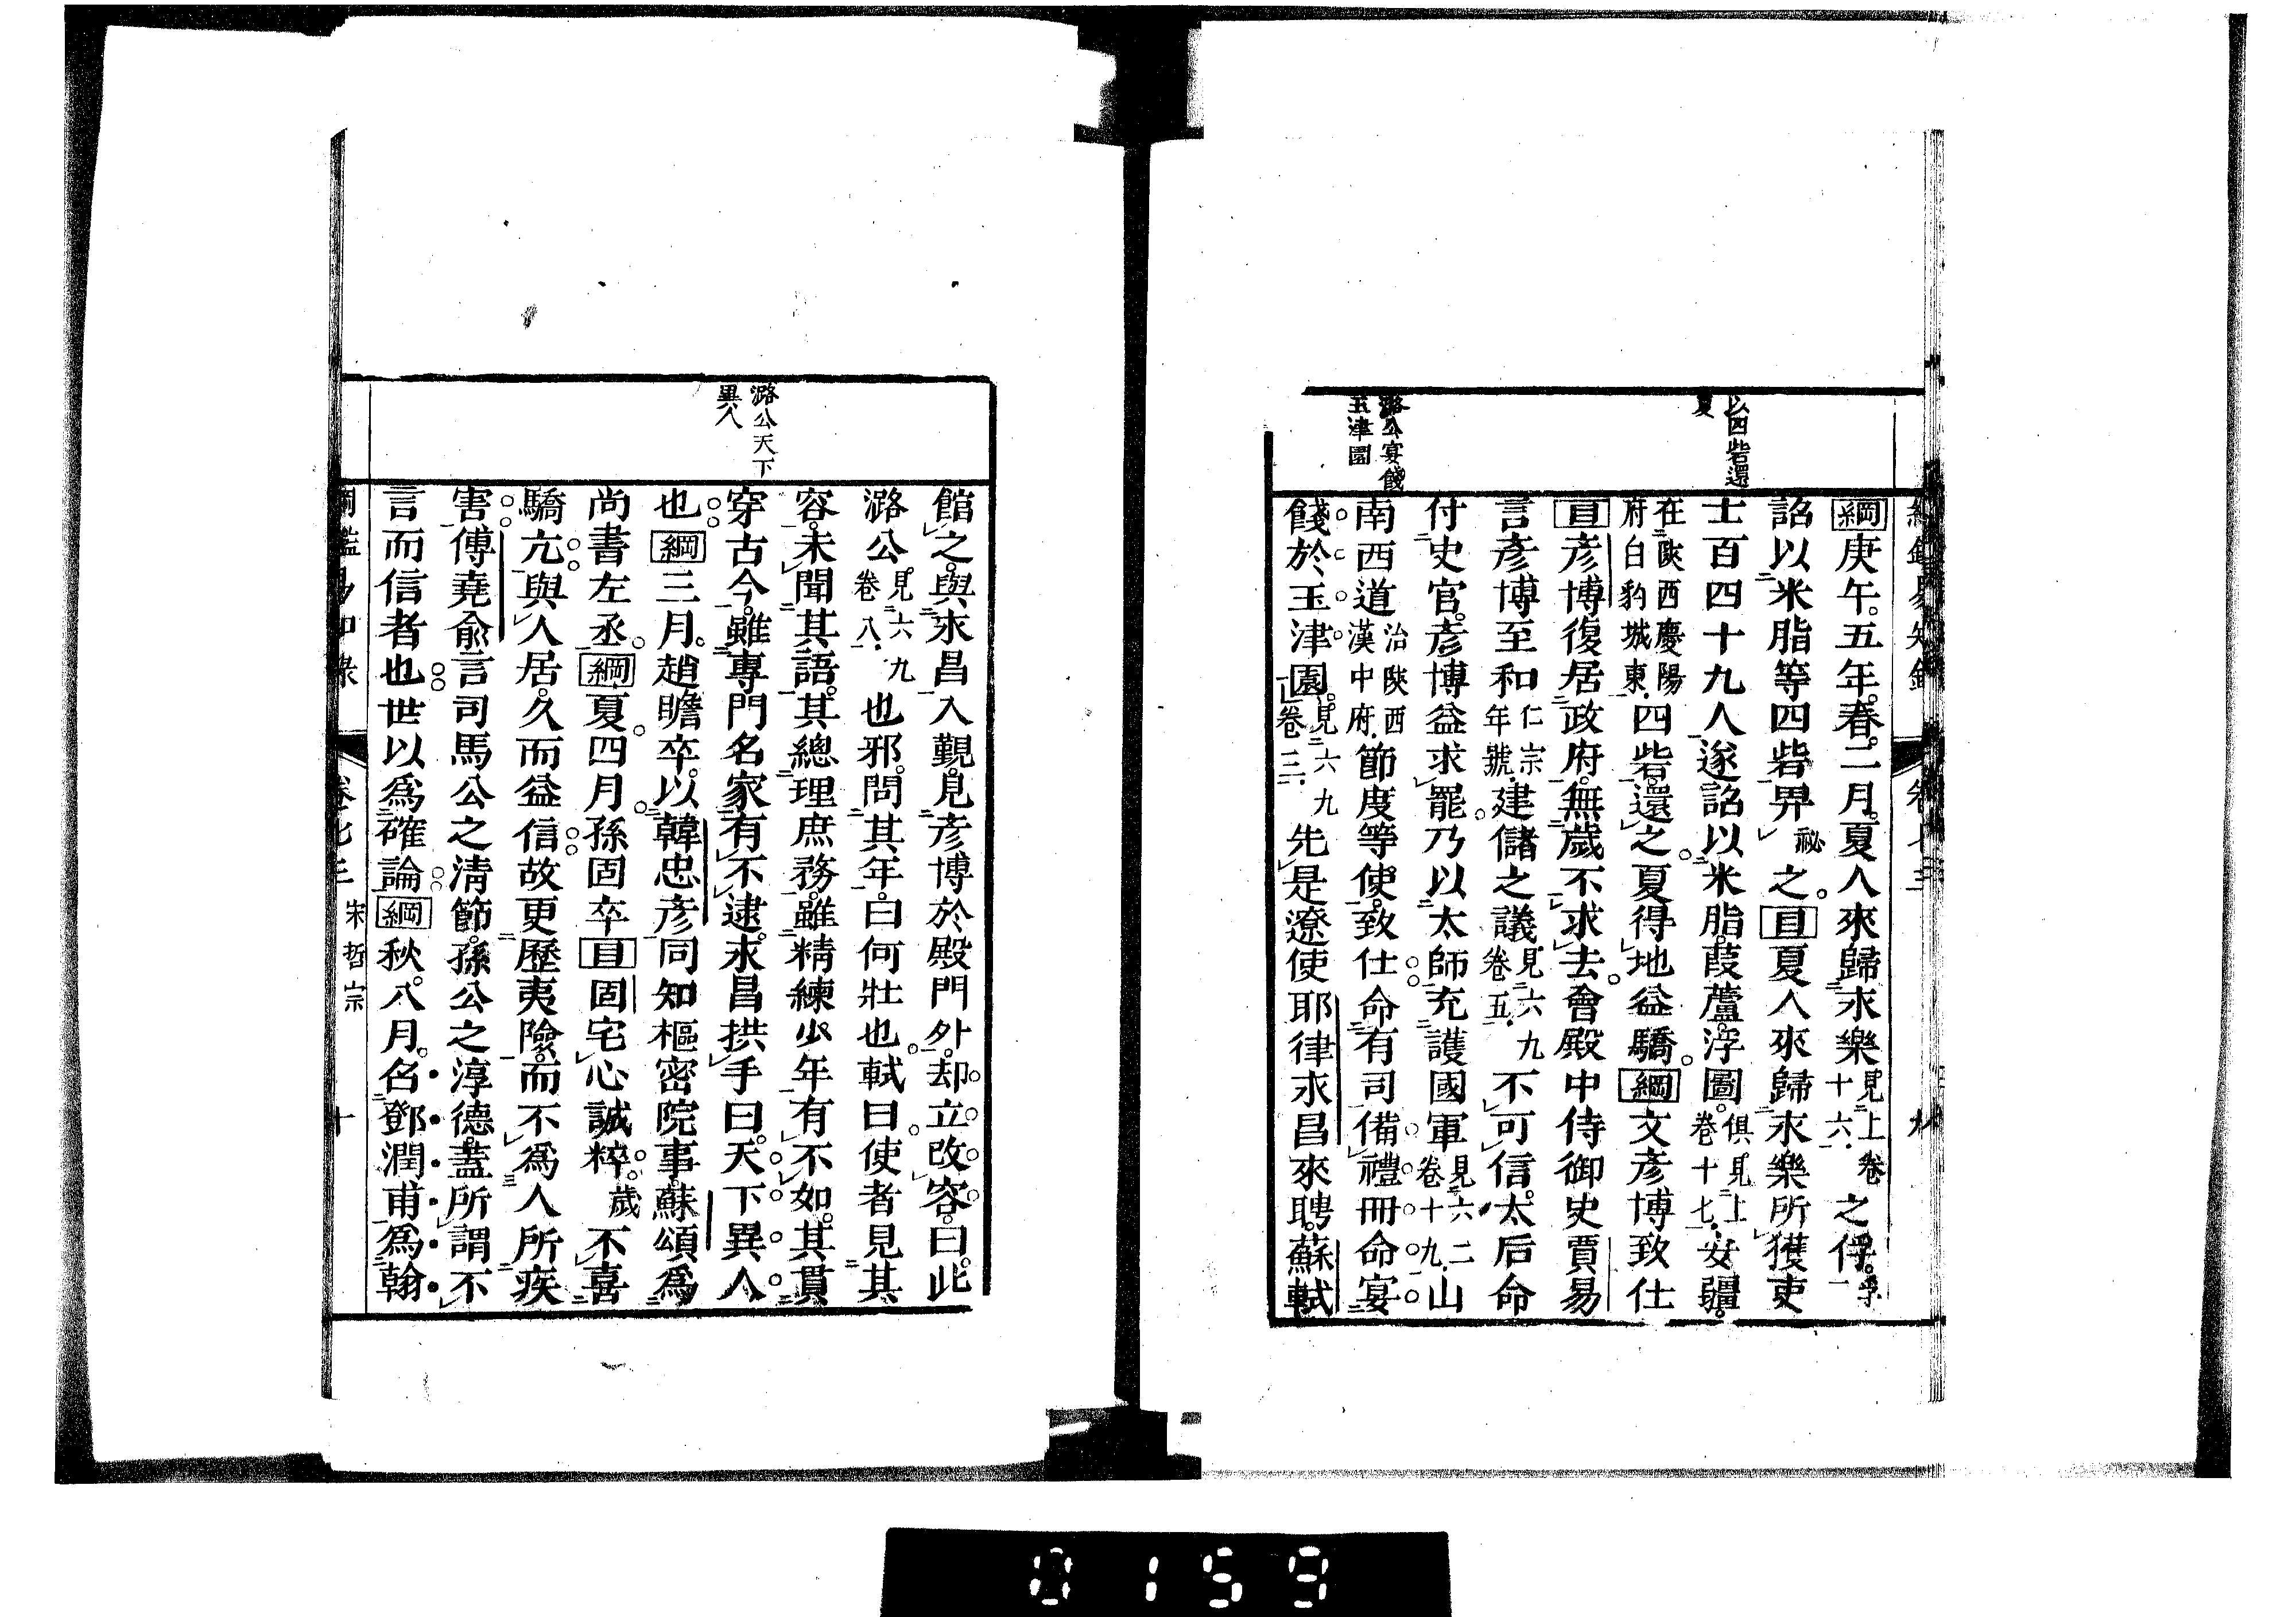 以四砦還
夏
潞公宴餞
玉津園
綱庚午。五年。春。二月。夏人來歸永樂見上卷十六。之俘。孚。
詔以米脂等四砦畀秘之。目夏人來歸永樂所獲吏
士百四十九人遂詔以米脂。葭蘆。浮圖。俱見上卷十七。安疆。
在陝西慶陽府白豹城東。四砦還之。夏得地益驕。綱文彥博致仕
目彥博復居政府。無歲不求去。會殿中侍御史賈易
言彥博至和仁宗年號。建儲之議見六九卷五。不可信。太后命
付史官。彥博益求罷。乃以太師充護國軍見六二卷十九。山
南西道治陝西漢中府。節度等使。致仕命有司備禮冊命宴
餞於玉津園。見六九卷三。先是遼使耶律永昌來聘。蘇軾
潞公天下
異人
館之。與永昌入覲。見彥博於殿門外。却立改容。曰。此
潞公見六九卷八。也邪。問其年。曰何壯也。軾曰使者見其
容。未聞其語。其總理庶務。雖精練少年有不如。其貫
穿古今。雖專門名家有不逮。永昌拱手曰。天下異人
也綱三月。趙瞻卒。以韓忠彥同知樞密院事。蘇頌為
尚書左丞。綱夏。四月。孫固卒目固宅心誠粹。歲不喜
驕亢與人居。久而益信故更歷夷險。而不為人所疾
害傅堯俞言司馬公之清節。孫公之淳德。蓋所謂不
言而信者也世以為確論綱秋。八月。名鄧潤甫為翰
宋哲宗
十